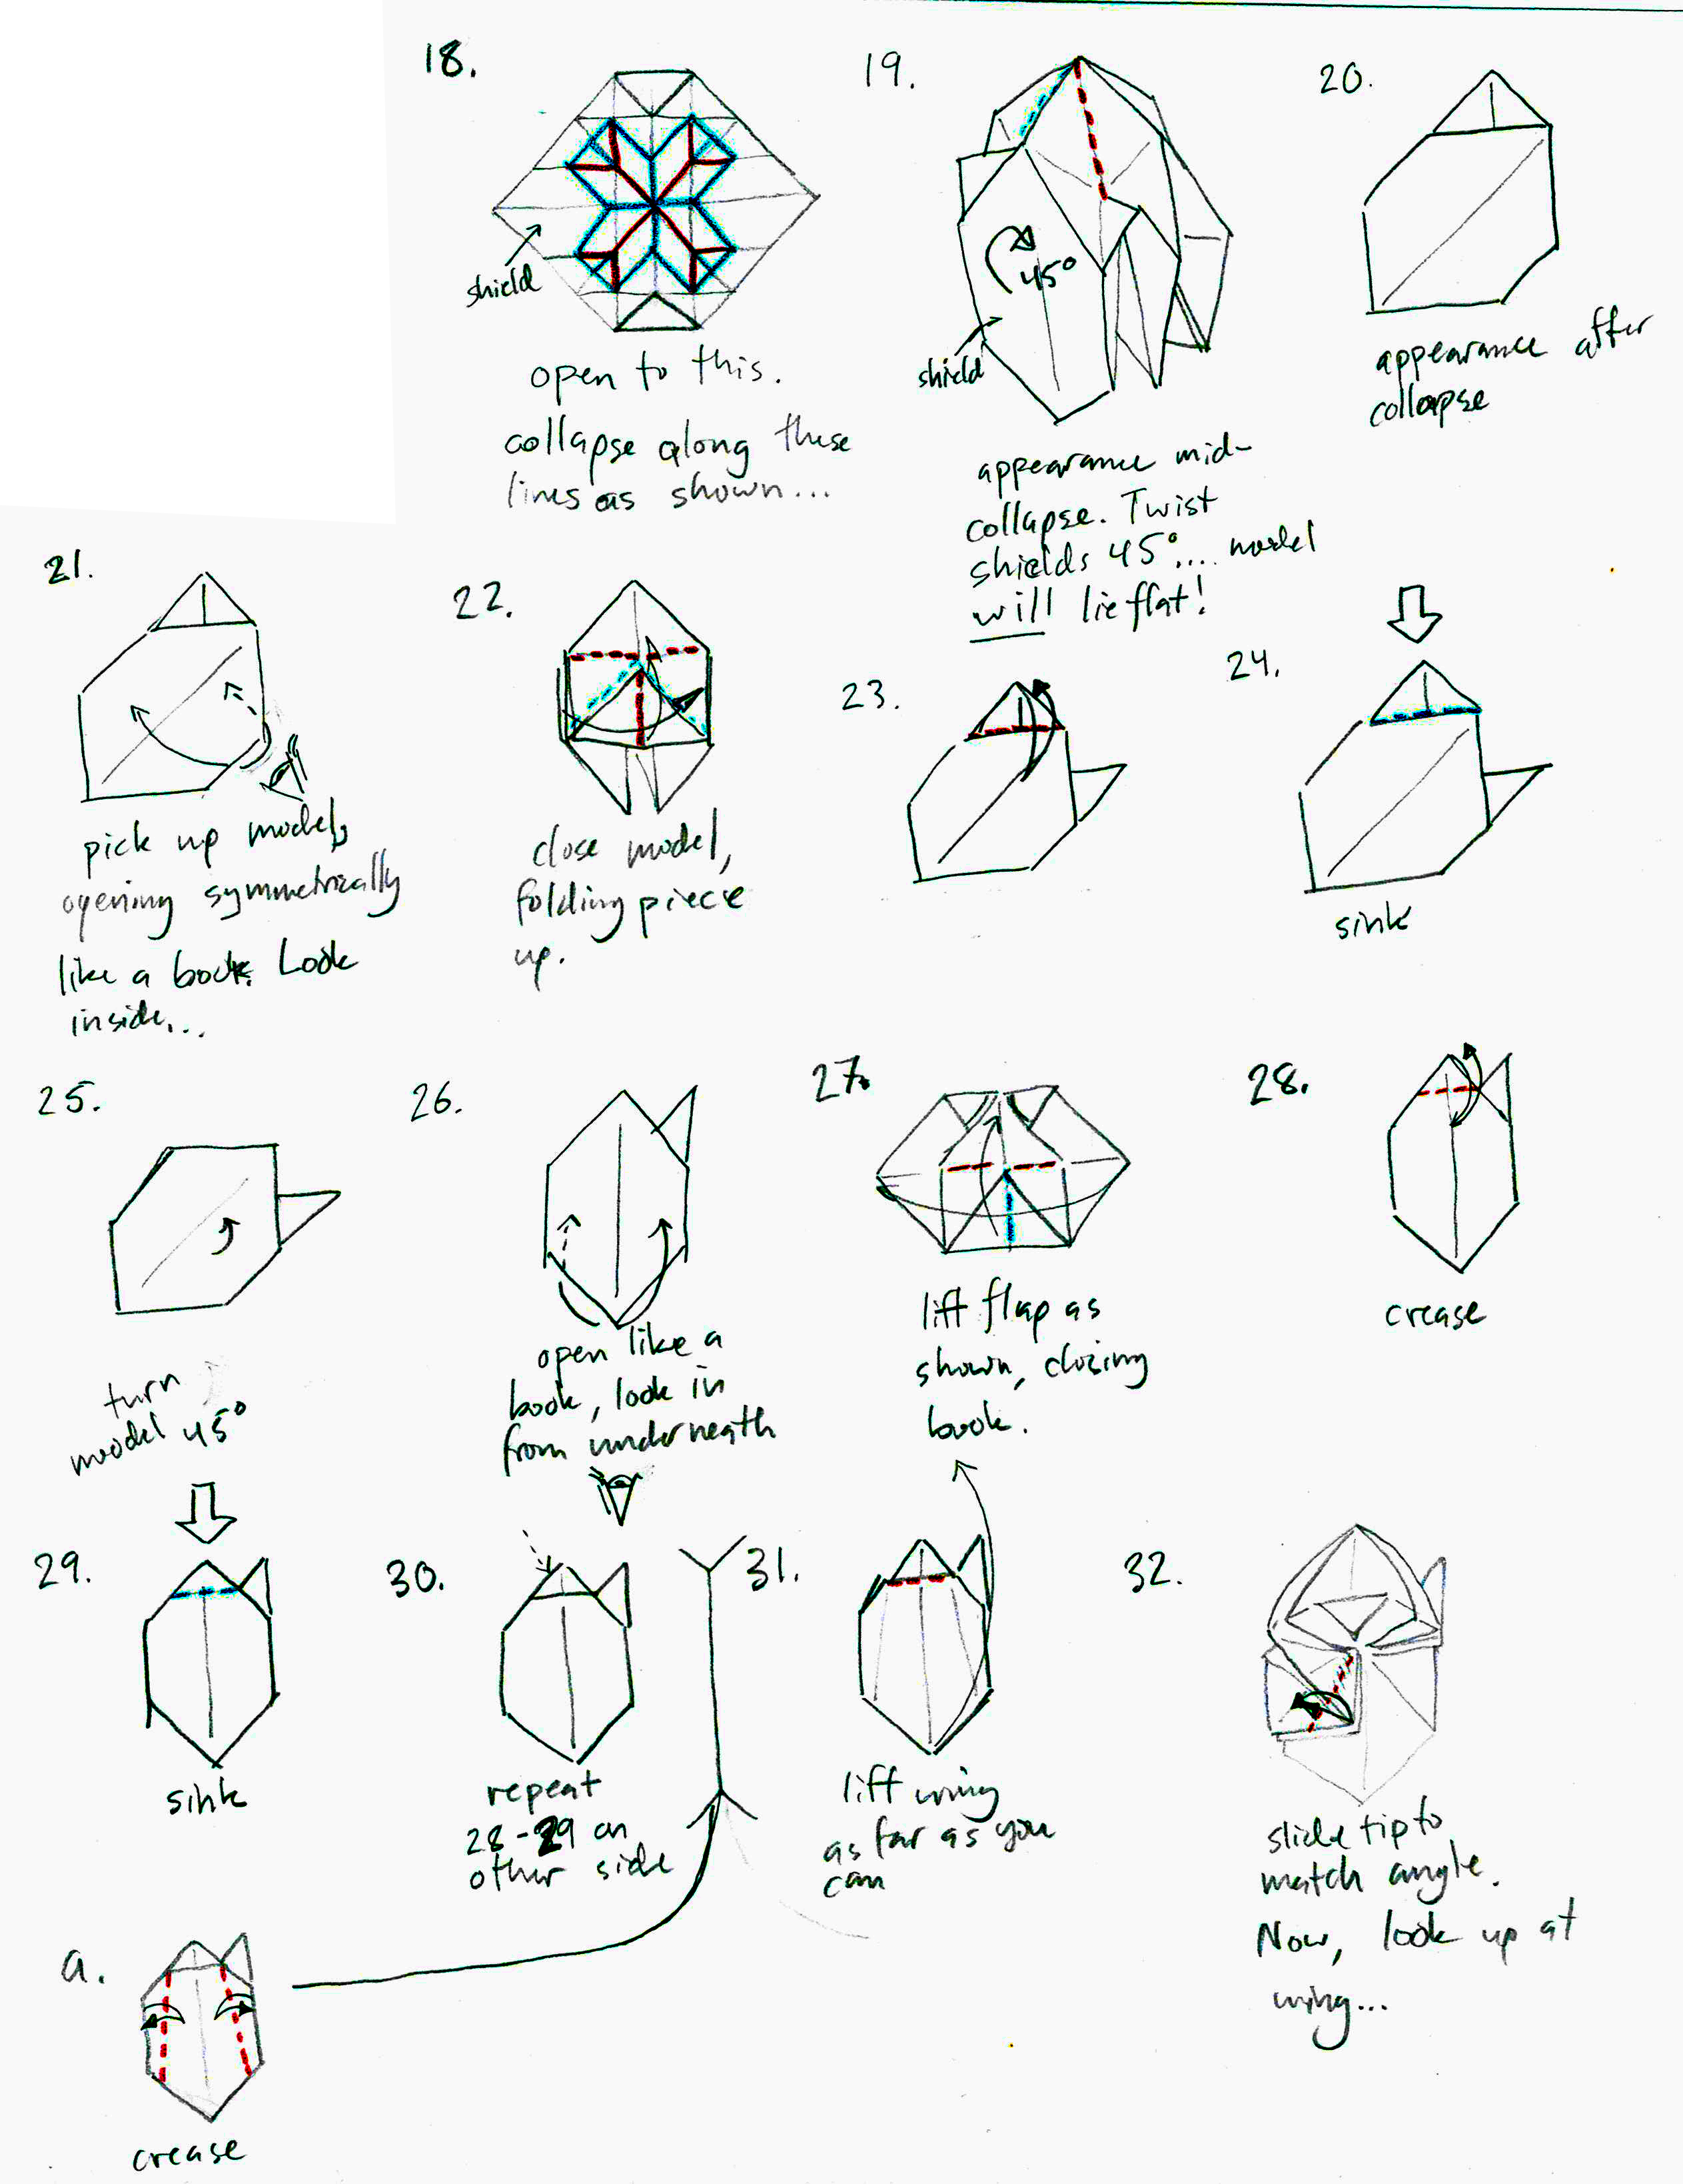 18.
shield
open to this.
collapse along these
lines as shown...
19.
45°
shield
appearance mid-
collapse. Twist
shields 45°.... model
will lie flat!
20.
appearance after
collapse
21.
pick up model,
opening symmetrically
like a book. Look
inside...
22.
close model,
folding piece
up.
23.
24.
sink
25.
turn
model 45°
26.
open like a
book, look in
from underneath
27.
lift flap as
shown, closing
book.
28.
crease
29.
sink
30.
repeat
28-29 on
other side
31.
lift wing
as far as you
can
32.
slide tip to
match angle.
Now, look up at
wing...
a.
crease